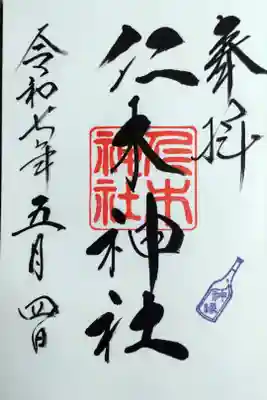 奉拝
仁木神社
仁木神社
令和七年五月四日